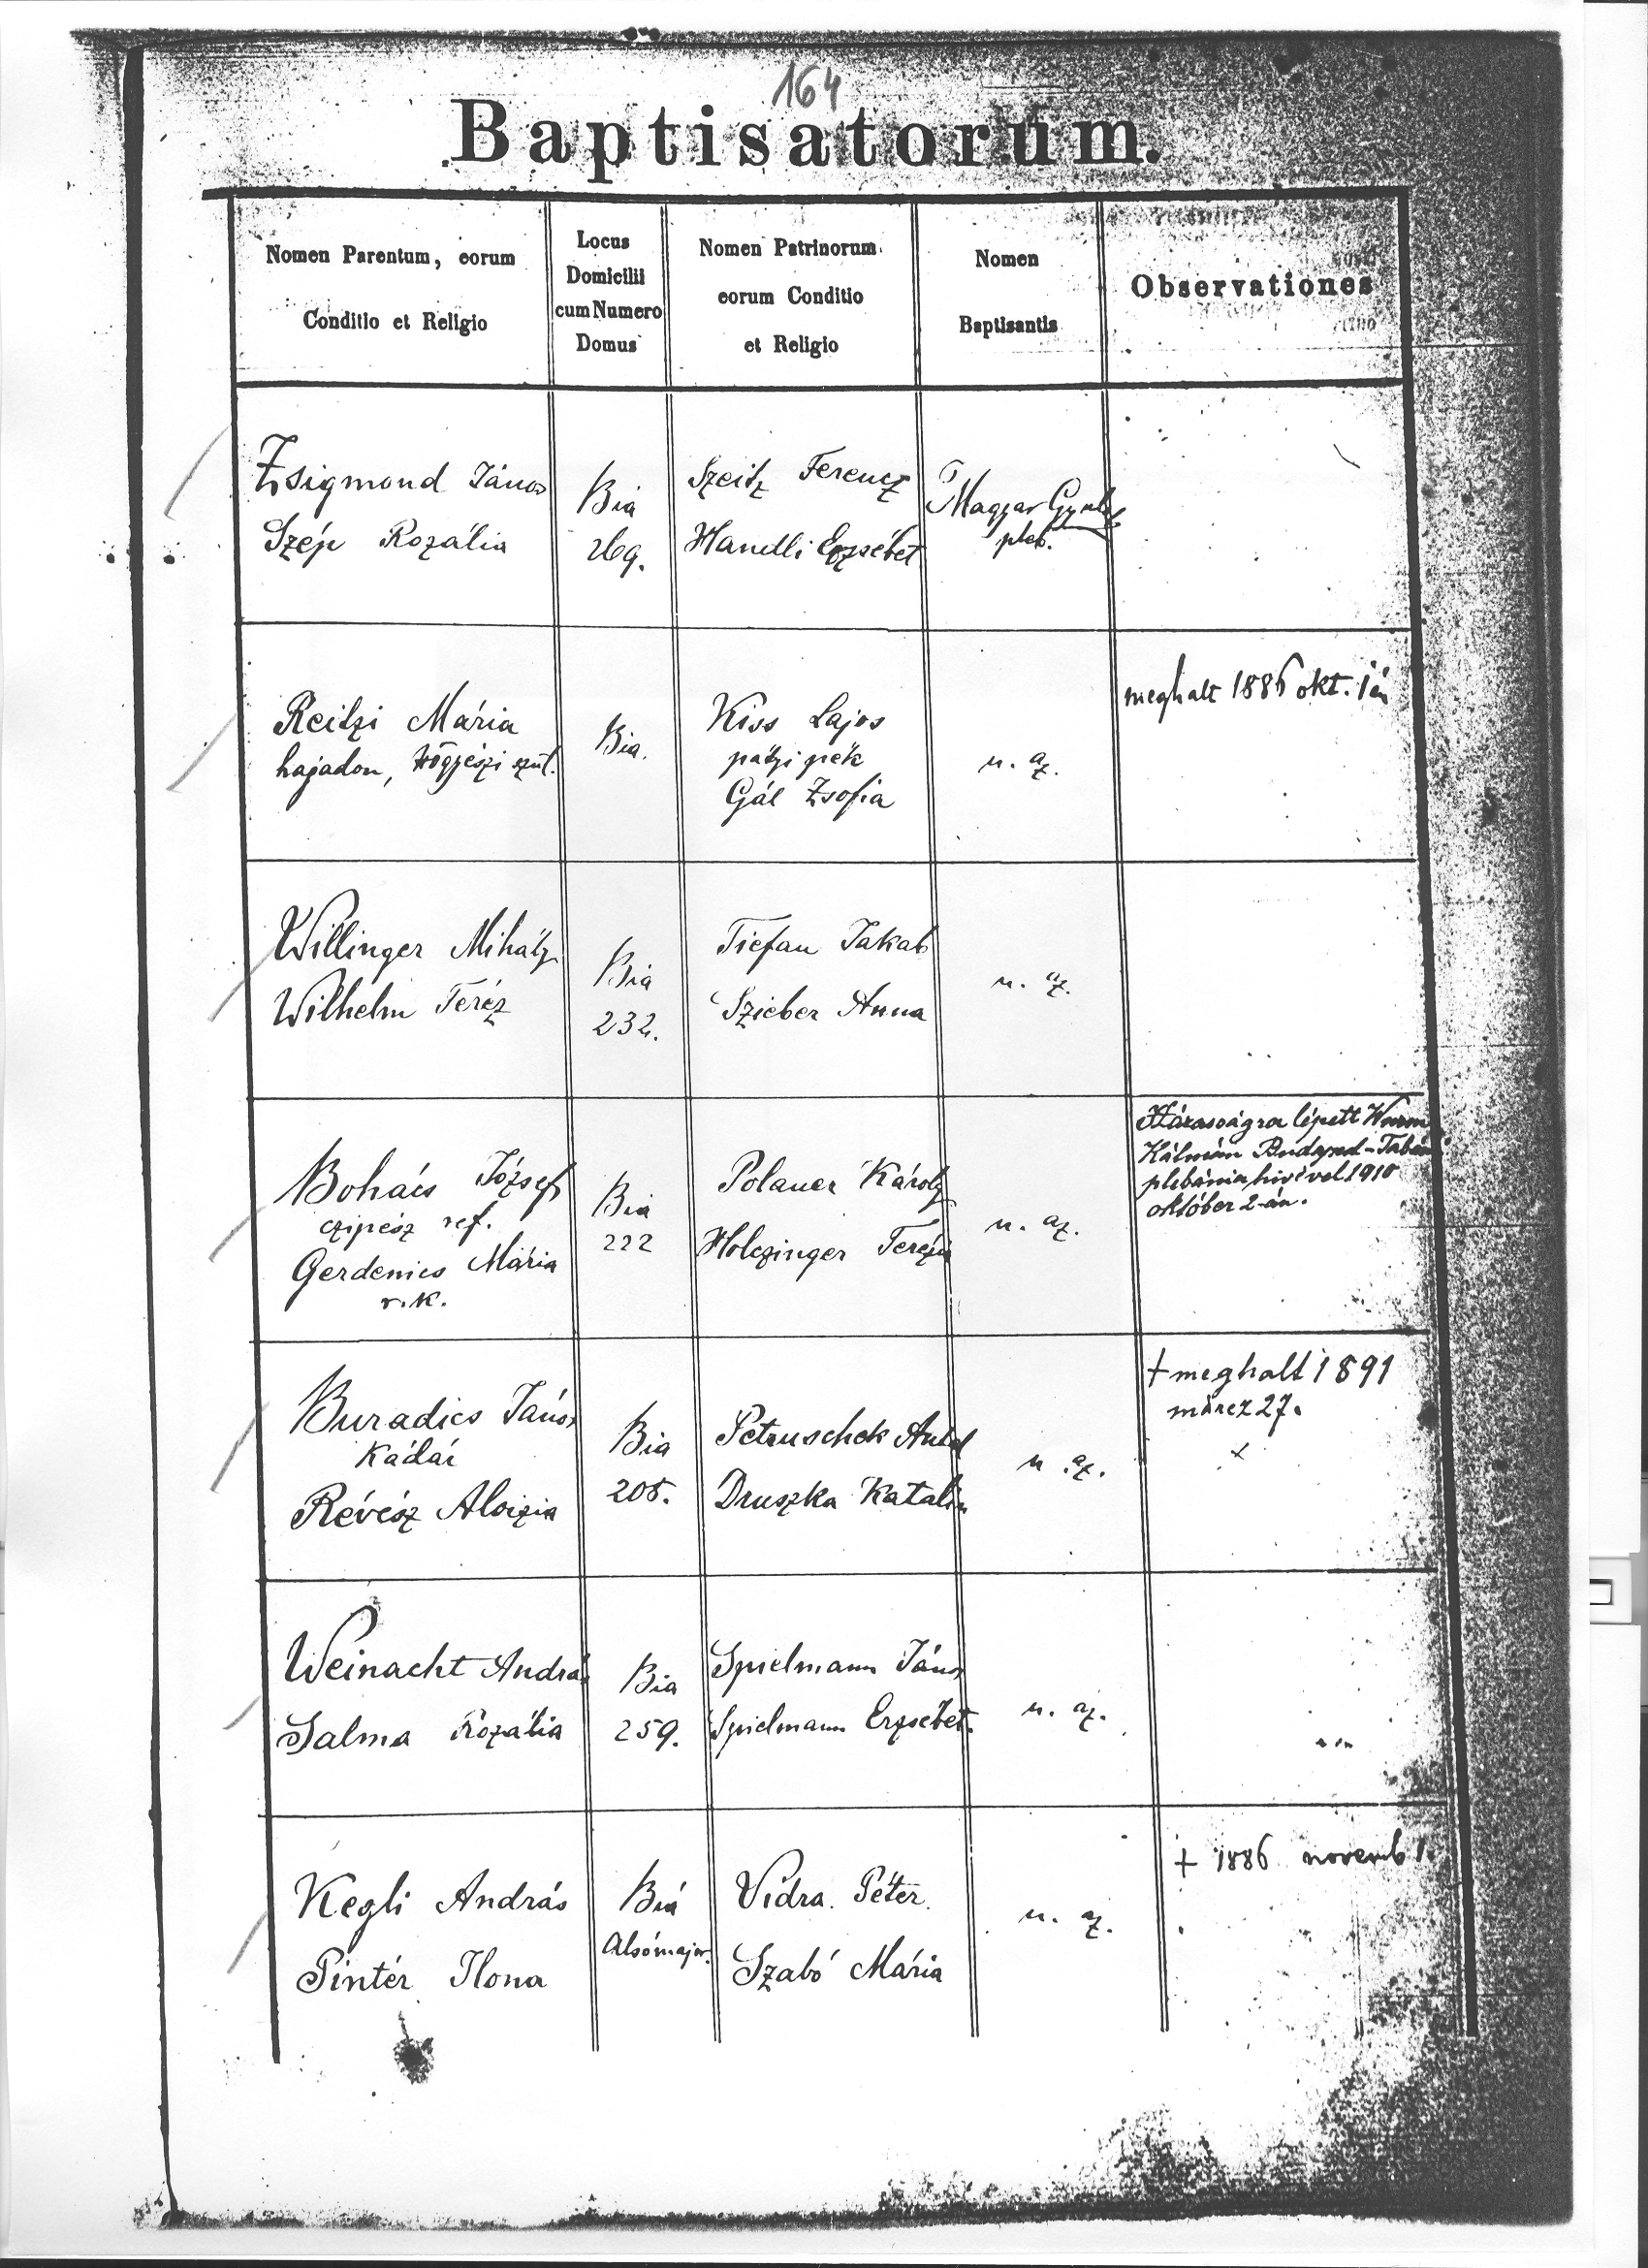 164
Baptisatorum.
Nomen Parentum, eorum
Conditio et Religio
Locus
Domicilii
cum Numero
Domus
Nomen Patrinorum
eorum Conditio
et Religio
Nomen
Baptisantis
Observationes
Zsigmond János
Szép Rozália
Bia
269.
Szeitz Ferencz
Handli Erzsébet
Magyar Gyula
pleb.
Reitzi Mária
hajadon, högyészi szül.
Bia.
Kiss Lajos
pátyi pék
Gál Zsofia
u. az.
meghalt 1886 okt. 1 én
Willinger Mihály
Wilhelm Teréz
Bia
232.
Tiefan Jakab
Szieber Anna
u. az.
Bohács József
czipész ref.
Gerdenics Mária
r. k.
Bia
222
Polauer Károly
Holczinger Terézia
u. az.
Házasságra lépett Wurm
Kálmán Budapest-Tabán
plébánia hivével 1910
október 2-án.
Buradics János
Kádár
Révész Aloizia
Bia
208.
Petruschek Antal
Druszka Katalin
u. az.
+ meghalt 1891
márcz 27.
Weinacht András
Salma Rozália
Bia
259.
Spielmann János
Spielmann Erzsébet.
u. az.
Kegli András
Pintér Ilona
Bia
Alsómajor.
Vidra Péter
Szabó Mária
u. az.
+ 1886 novemb 1.